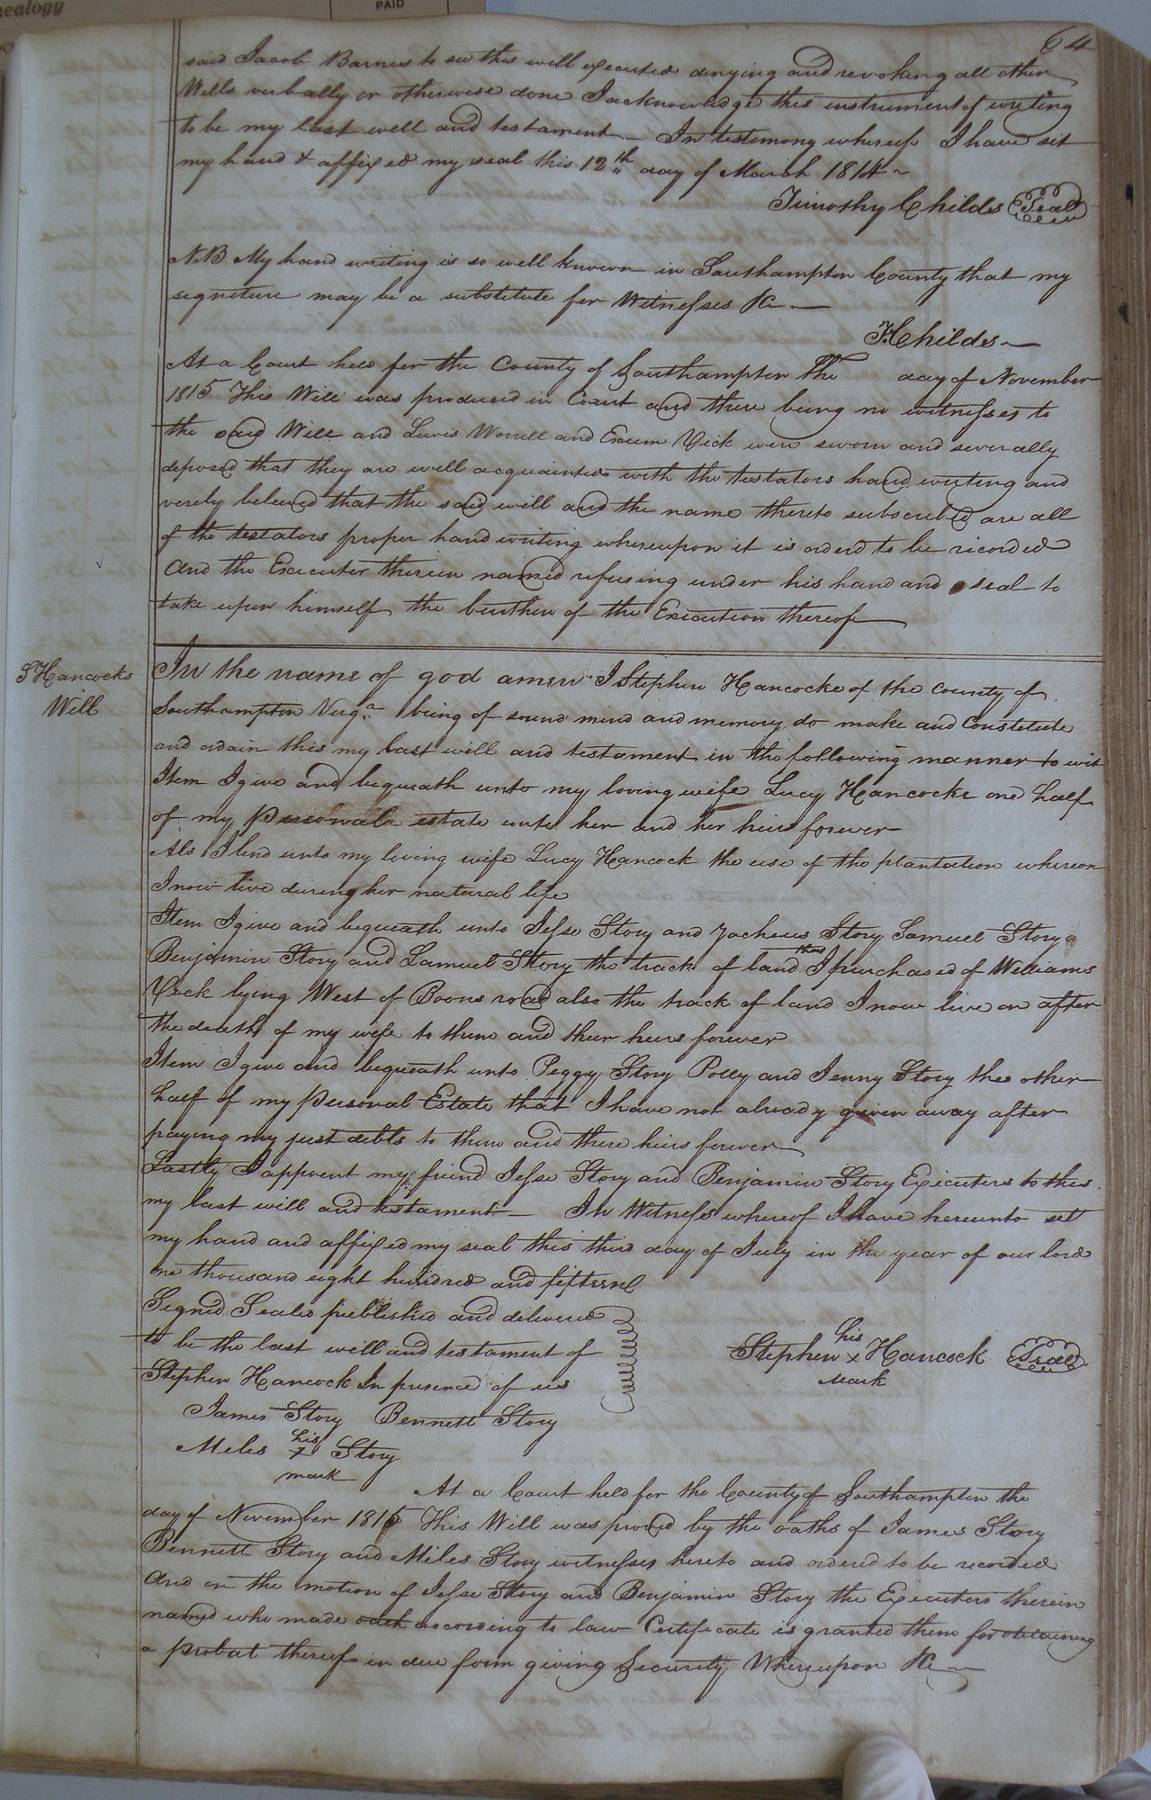 nealogy
PAID
64
said Jacob Barnes to see this will executed denying and revoking all other
Wills verbally or otherwise done I acknowledge this instrument of writing
to be my last will and testament — In testimony whereof I have sit
my hand & affixed my seal this 12th day of March 1814 ~
Timothy Childs Seal
NB My hand writing is so well known in Southampton County that my
signeture may be a substitute for Witnesses &c —
T Childs —
At a Court held for the County of Southampton the day of November
1815 This Will was produced in Court and there being no witnesses to
the said Will and Lewis Worrell and Exum Vick were sworn and severally
deposed that they are well acquainted with the testators hand writing and
verely beleived that the said will and the name thereto subscribed are all
of the testators proper hand writing whereupon it is orderd to be recorded
And the Executer therein named refusing under his hand and seal to
take upon himself the burthen of the Execution thereof
S Hancocks
Will
In the name of god amen I Stephen Hancocke of the county of
Southampton Virga being of sound mind and memory do make and Constitute
and ordain this my last will and testament in the following manner to wit
Item I give and bequeath unto my loving wife Lucy Hancocke one half
of my personale estate unto her and her heirs forever
Als I lend unto my loving wife Lucy Hancock the use of the plantation whereon
I now live during her natural life
Item I give and bequeath unto Jesse Story and Zacheus Story Samuel Story
Benjamin Story and Lamuel Story the track of land that I purchased of Williams
Vick lying West of Boons road also the track of land I now live on after
the death of my wife to them and their heirs forever
Item I give and bequeath unto Peggy Story Polly and Jenny Story the other
half of my personal Estate that I have not already given away after
paying my just debts to them and there heirs forever
Lastly I appoint my friend Jesse Story and Benjamin Story Executers to this
my last will and testament — In Witness whereof I have hereunto set
my hand and affixed my seal this third day of July in the year of our lord
one thousand eight hundred and fifteen
Signd Seald published and delivered
to be the last will and testament of
Stephen Hancock In presence of us
his
Stephen x Hancock Seal
mark
James Story Bennett Story
his
Miles x Story
mark
At a Court held for the County of Southampton the
day of November 1815 This Will was proved by the oaths of James Story
Bennett Story and Miles Story witnesses hereto and ordered to be recorded
And on the motion of Jesse Story and Benjamin Story the Executers therein
named who made oath according to law Certificate is granted them for obtaining
a probat thereof in due form giving Security Whereupon &c —